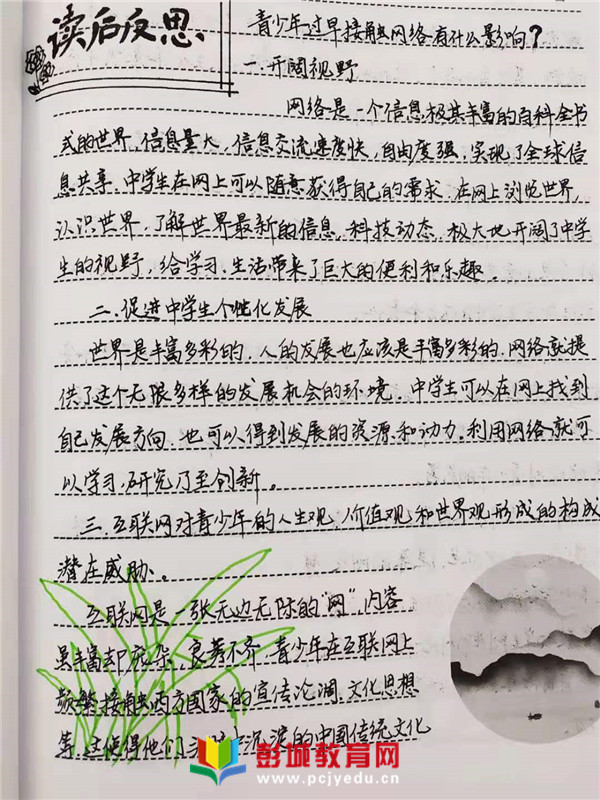 读后反思
青少年过早接触网络有什么影响?
一.开阔视野
网络是一个信息极其丰富的百科全书
式的世界,信息量大,信息交流速度快,自由度强,实现了全球信
息共享.中学生在网上可以随意获得自己的需求.在网上浏览世界,
认识世界,了解世界最新的信息,科技动态.极大地开阔了中学
生的视野,给学习.生活带来了巨大的便利和乐趣。
二.促进中学生个性化发展
世界是丰富多彩的.人的发展也应该是丰富多彩的.网络就提
供了这个无限多样的发展机会的环境.中学生可以在网上找到
自己发展方向.也可以得到发展的资源和动力.利用网络就可
以学习.研究乃至创新。
三.互联网对青少年的人生观.价值观和世界观形成的构成
潜在威胁。
互联网是一张无边无际的“网”.内容
虽丰富却庞杂.良莠不齐.青少年在互联网上
频繁接触西方国家的宣传论调.文化思想
等.这使得他们 沉淀的中国传统文化
彭城教育网
www.pcjyedu.cn